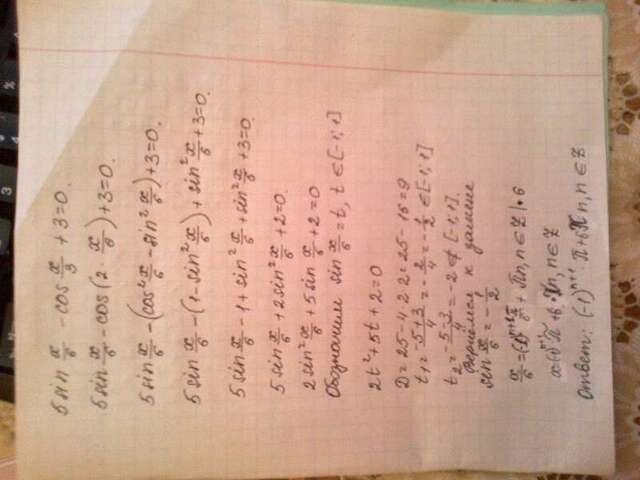 5 sin x/6 - cos x/3 + 3 = 0.
5 sin x/6 - cos (2 x/6) + 3 = 0.
5 sin x/6 - (cos² x/6 - sin² x/6) + 3 = 0.
5 sin x/6 - (1 - sin² x/6) + sin² x/6 + 3 = 0.
5 sin x/6 - 1 + sin² x/6 + sin² x/6 + 3 = 0.
5 sin x/6 + 2 sin² x/6 + 2 = 0.
2 sin² x/6 + 5 sin x/6 + 2 = 0
Обозначим sin x/6 = t, t ∈ [-1; 1]
2t² + 5t + 2 = 0
D = 25 - 4·2·2 = 25 - 16 = 9
t₁ = -5+3/4 = -2/4 = -1/2 ∈ [-1; 1]
t₂ = -5-3/4 = -2 ∉ [-1; 1].
Вернёмся к замене
sin x/6 = -1/2
x/6 = (-1)ⁿ⁺¹ π/6 + πn, n ∈ Z | · 6
x = (-1)ⁿ⁺¹ π + 6πn, n ∈ Z
Ответ: (-1)ⁿ⁺¹ · π + 6πn, n ∈ Z